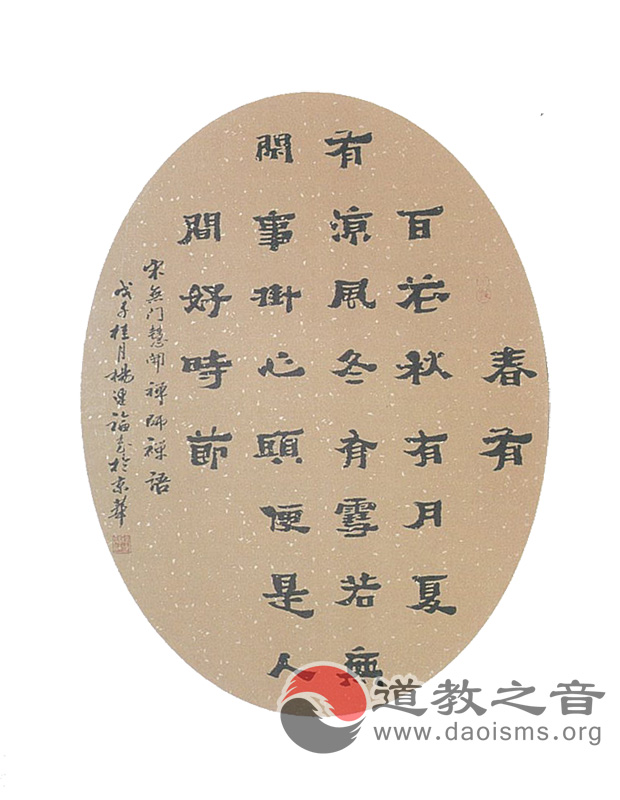 春有
百花秋有月夏
有涼風冬有雪若無
閑事掛心頭便是人
間好時節
宋無门慧開禪師禪語
戊子桂月楊福书於京華
道教之音
www.daoisms.org